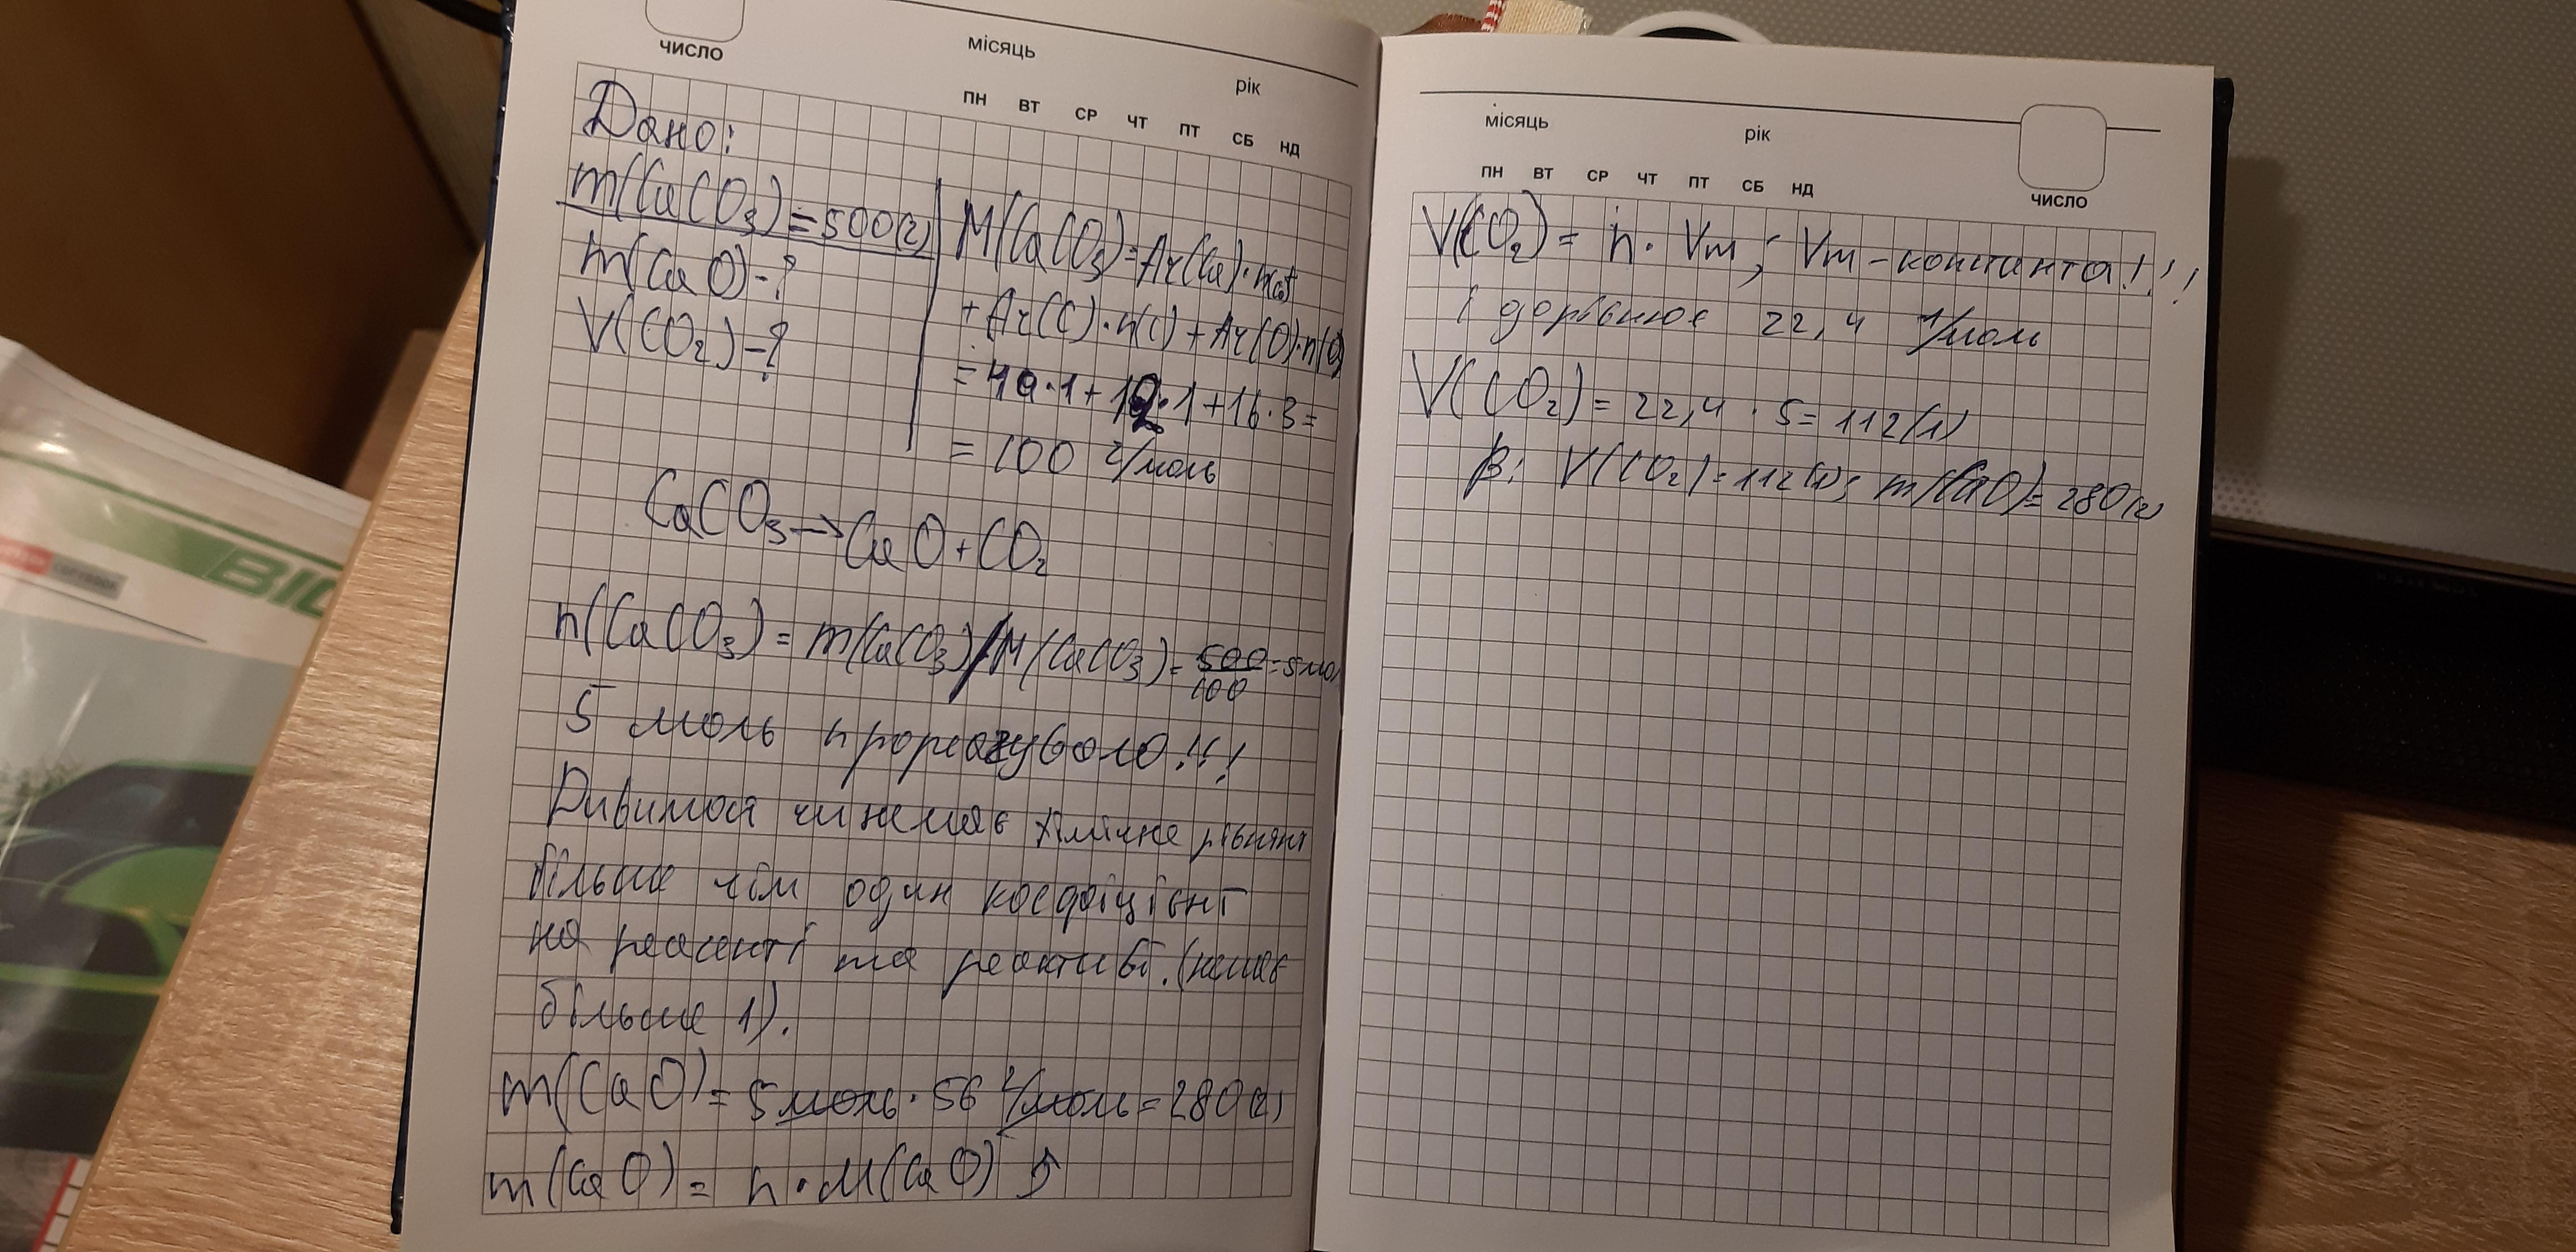 число
місяць
рік
ПН ВТ СР ЧТ ПТ СБ НД
Дано:
m(CaCO₃)=500(г)
m(CaO)-?
V(CO₂)-?
M(CaCO₃)=Ar(Ca)·n(Ca)+
+Ar(C)·n(C)+Ar(O)·n(O)
=40·1+12·1+16·3=
=100 г/моль
CaCO₃→CaO+CO₂
n(CaCO₃)=m(CaCO₃)/M(CaCO₃)=500/100=5мол
5 моль прореагувало!!!
Дивимося чи немає хімічне рівнян
більше чім один коефіцієнт
на реагенті та реактиві.(немає
більше 1).
m(CaO)=5моль·56 г/моль=280(г)
m(CaO)=n·M(CaO)
місяць
рік
ПН ВТ СР ЧТ ПТ СБ НД
число
V(CO₂)=n·Vm; Vm-константа!!!
і дорівнює 22,4 л/моль
V(CO₂)=22,4·5=112(л)
В: V(CO₂)=112(л); m(CaO)=280(г)
BIO